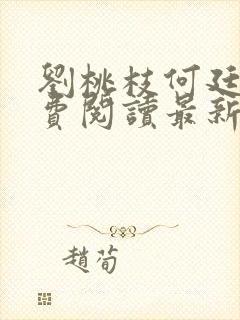 劉桃枝何廷
費閱讀最新
趙荀